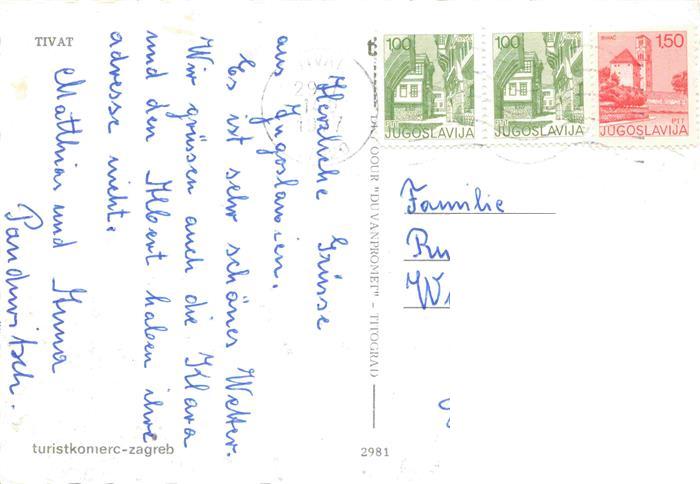 TIVAT
Herzliche Grüsse
aus Jugoslawien.
Es ist sehr schönes Wetter.
Wir grüssen auch die Klara
und den Albert haben ihre
adresse nicht.
Matthias und Anna
Pandwitsch.
turistkomerc-zagreb
2981
OOUR "DUVANPROMET" - TITOGRAD
1.00
PTT
JUGOSLAVIJA
1.00
JUGOSLAVIJA
BIHAĆ
1.50
PTT
JUGOSLAVIJA
Familie